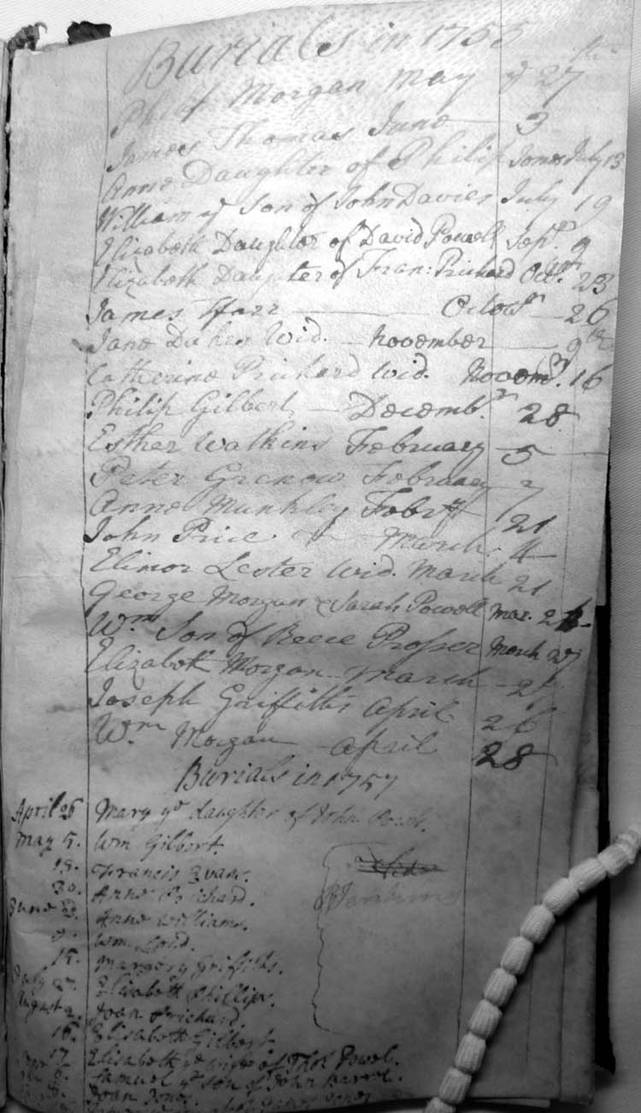 Burials in 1755
Philip Morgan May ye 27th
James Thomas June 3
Anne Daughter of Philip Jones July 13
William ye Son of John Davies July 19
Elizabeth Daughter of David Powell Sepr. 9
Elizabeth Daughter of Fran: Prichard Octr. 23
James Octobr 26
Jane Wid. November 9th
Catherine Prichard Wid. Novemr. 16
Philip Gilbert Decembr 28
Esther Watkins February 5
Peter Grenow February 7
Anne Munkley Febry 21
John Price March 4
Elinor Lester Wid. March 21
George Morgan & Sarah Powell Mar.
Wm Son of Reece Prosser March 27
Elizabeth Morgan March
Joseph Griffiths April 26
Wm Morgan April 28
Burials in 1757
April 26 Mary ye daughter of John Powel.
May 5. Wm Gilbert.
15. Francis Evans.
30. Anne Prichard.
June Anne Williams.
Wm
15. Margery Griffiths.
July 27. Elisabeth Phillips.
August 2. Joan Prichard
16. Elisabeth Gilbert
17 Elisabeth ye wife of Thos Powel.
Samuel ye son of John
Joan Jones